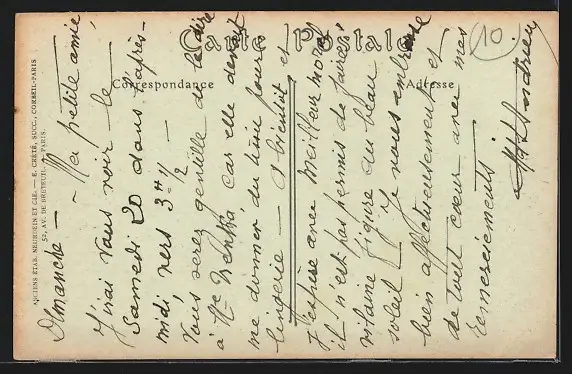 Carte Postale
Correspondance
Adresse
10
ANCIENS ÉTAB. NEURDEIN ET CIE. — E. CRÉTÉ, SUCC., CORBEIL-PARIS
52, AV. DE BRETEUIL, PARIS.
Dimanche — Ma petite amie,
J'irai vous voir le
Samedi 20 dans l'après-
midi vers 3H 1/2 —
Vous serez gentille de le dire
à Mme car elle devait
me donner du linon pour
lingerie — A bientôt et
J'espère avec meilleur moral
il n'est pas permis de faire
vilaine figure au beau
soleil — Je vous embrasse
bien affectueusement et
de tout cœur avec mes
remerciements —